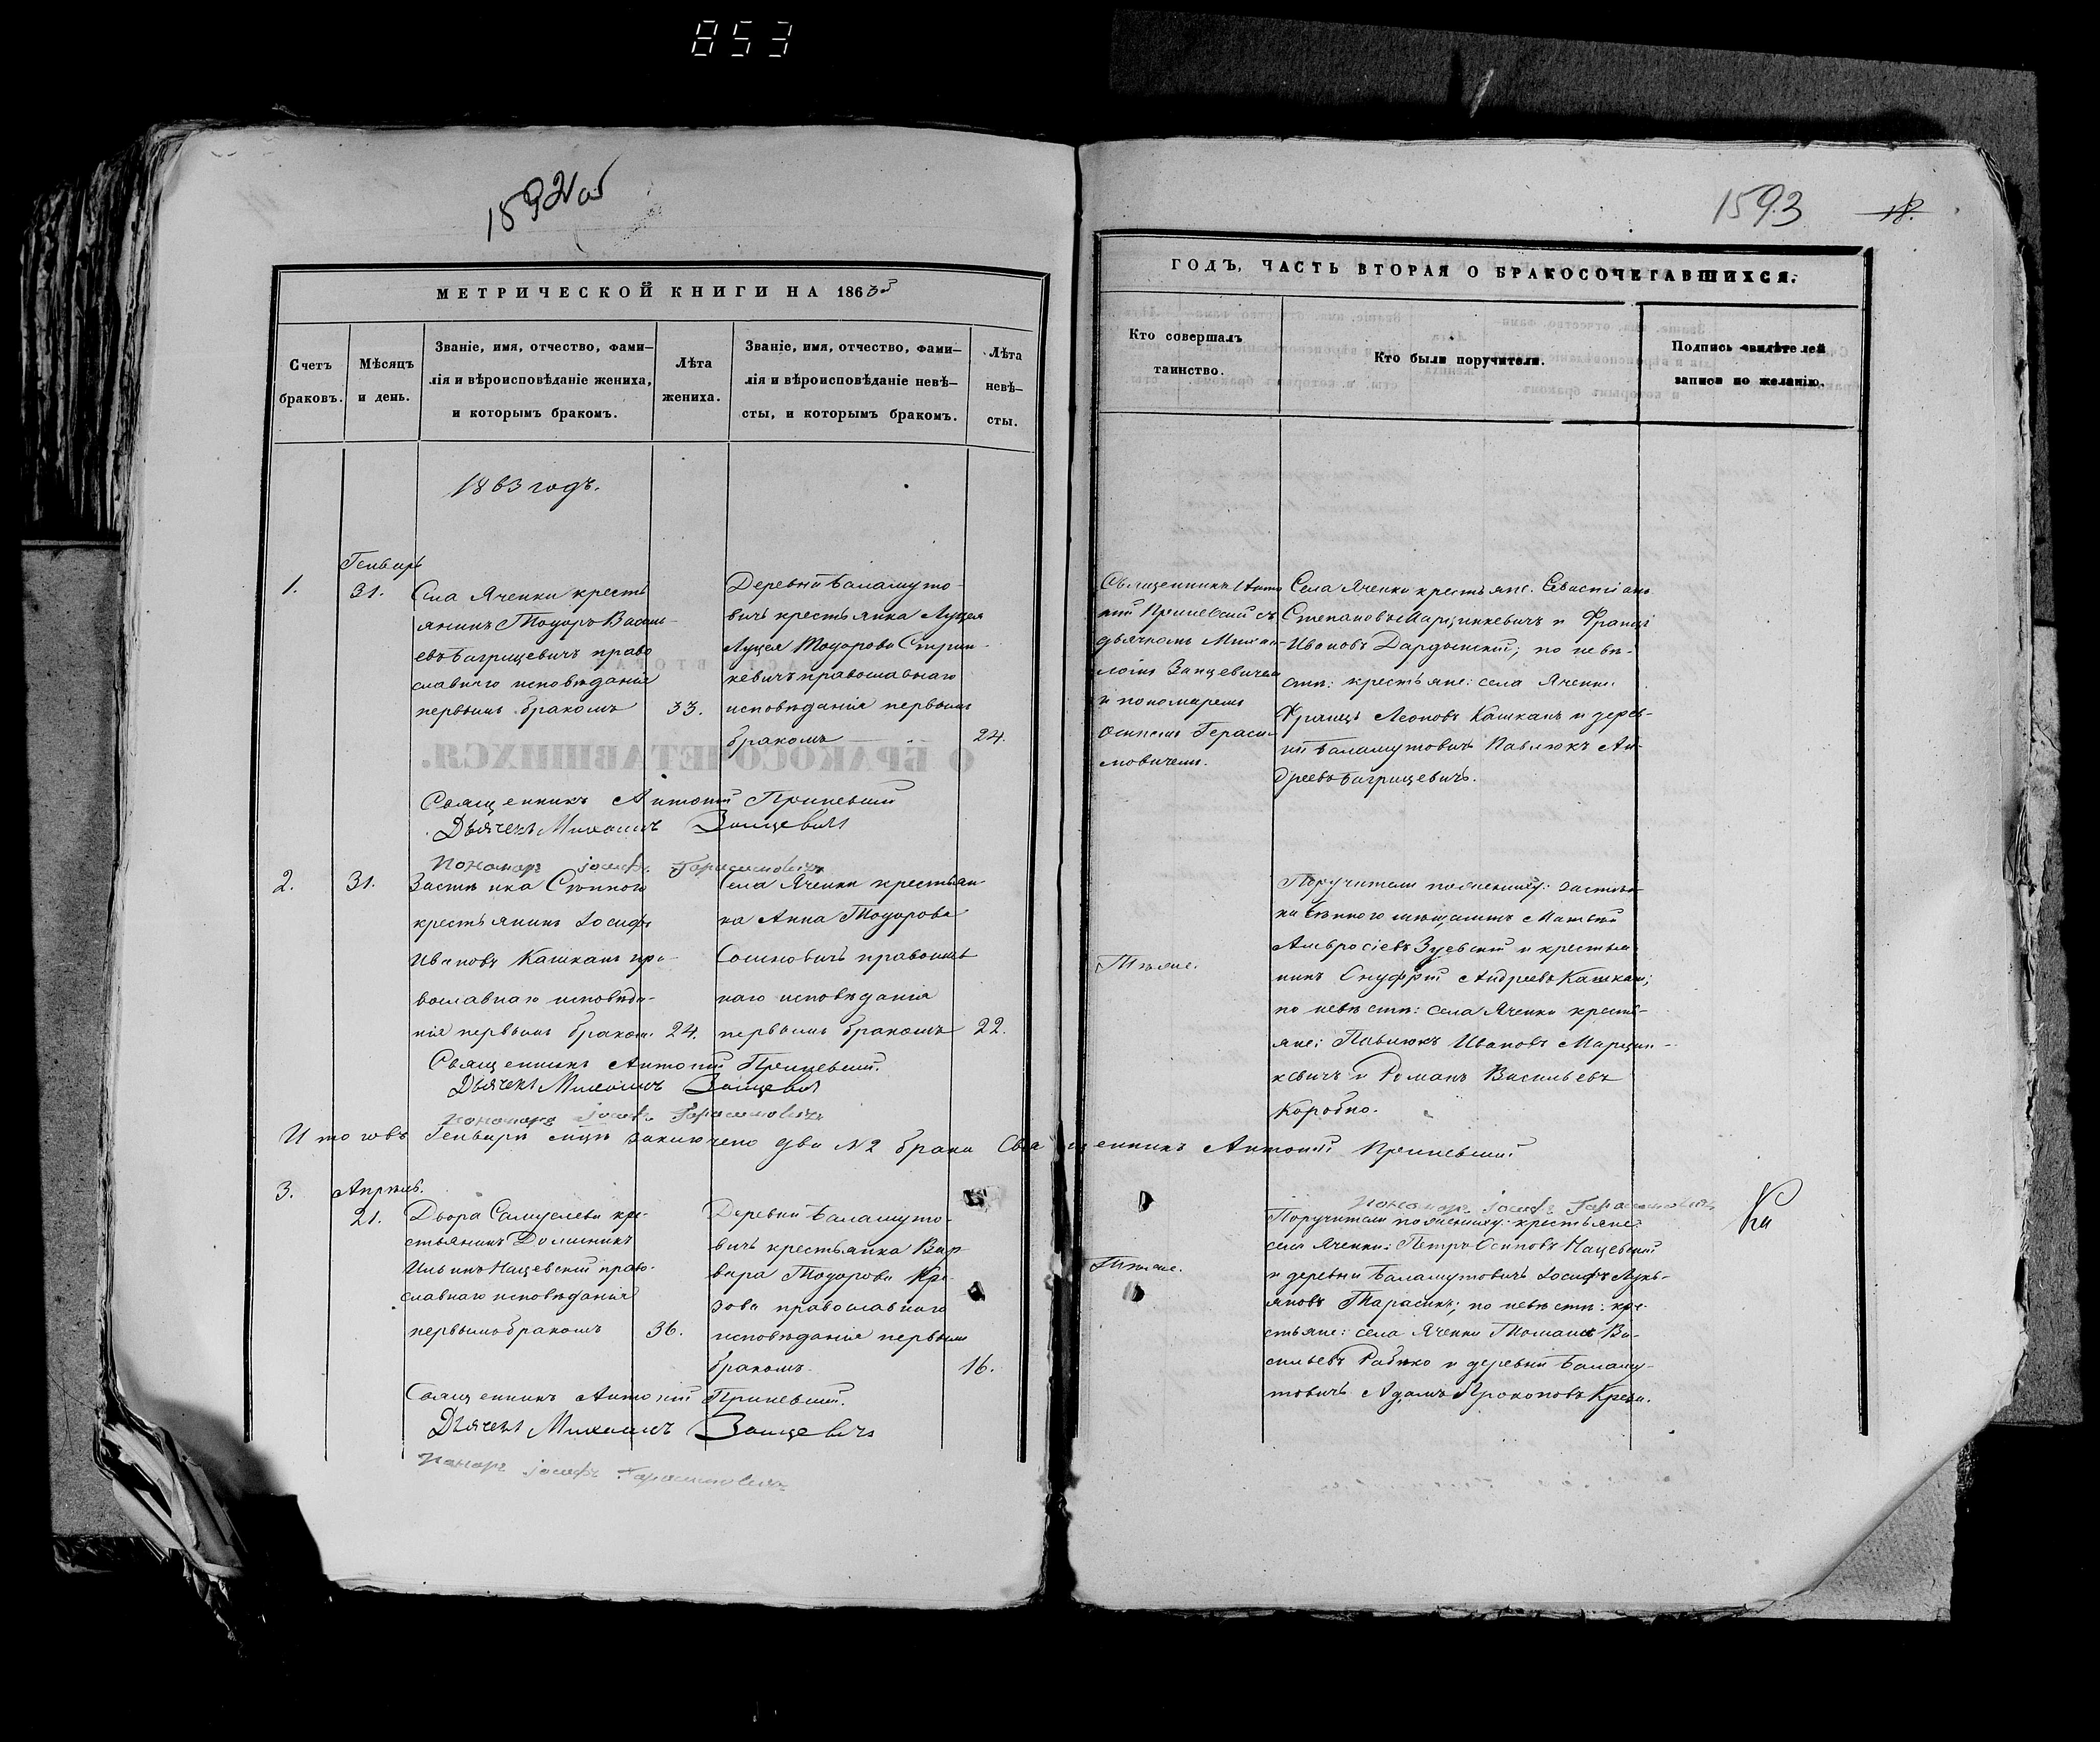 853
1592 об
1593
18.
МЕТРИЧЕСКОЙ КНИГИ НА 1863й
Счетъ браковъ.
Мѣсяцъ и день.
Званіе, имя, отчество, фами-
лія и вѣроисповѣданіе жениха,
и которымъ бракомъ.
Лѣта жениха.
Званіе, имя, отчество, фами-
лія и вѣроисповѣданіе невѣ-
сты, и которымъ бракомъ.
Лѣта невѣ-
сты.
ГОДЪ, ЧАСТЬ ВТОРАЯ О БРАКОСОЧЕТАВШИХСЯ.
Кто совершалъ
таинство.
Кто были поручители.
Подпись свидѣтелей
записи по желанію.
1863 годъ.
Генварь
1.
31.
Села Яченки кресть
янинъ Тодоръ Василь-
евъ Багрицевичъ право
славнаго исповѣданія
первымъ бракомъ
33.
Деревни Баламуто-
вичъ крестьянка Луцея
Луцея Тодорова Стрин-
кевичъ православнаго
исповѣданія первымъ
бракомъ
24.
Священникъ Анто
ній съ
дьячкомъ Миха-
иломъ Занцевичемъ
и пономаремъ
Осипомъ Гераси-
мовичемъ.
Села Яченки крестьяне: Севастіанъ
Степановъ Марцинкевичъ и Францъ
Ивановъ Дардынскій; по невѣ-
стѣ: крестьяне: села Яченки
Францъ Леоновъ Кашканъ и дерев-
ни Баламутовичъ Павлюкъ Ан-
дреевъ Багрицевичъ.
Священникъ Антоній
Дьячекъ Михаилъ Занцевичъ
Пономарь Іосифъ Герасимовичъ
2.
31.
Застѣнка Сѣннаго
крестьянинъ Іосифъ
Ивановъ Кашканъ пра-
вославнаго исповѣда-
нія первымъ браком.
24.
Села Яченки крестьян-
ка Анна Тодорова
православ
наго исповѣданія
первымъ бракомъ
22.
Тѣже.
Поручители по женихѣ: застѣн-
ка Сѣннаго мѣщанинъ Матвей
Амвросіевъ Зуевскій и крестья-
нинъ Онуфрій Андреевъ Кашкан;
по невѣстѣ: села Яченки кресть-
яне: Павлюкъ Ивановъ Марцин-
кевичъ и Романъ Васильевъ
Коробко.
Священникъ Антоній
Дьячекъ Михаилъ Занцевичъ
Пономарь Іосифъ Герасимовичъ
Итого въ Генварѣ мцѣ заключено два №2 брака Священникъ Антоній
Пономарь Іосифъ Герасимовичъ
3.
Апрѣль.
21.
Двора Самуелева кре-
стьянинъ Доминикъ
Ильинъ Нацевскій право-
славнаго исповѣданія
первымъ бракомъ
36.
Деревни Баламуто-
вичъ крестьянка Вар-
вара Тодорова Кре-
зова православнаго
исповѣданія первымъ
бракомъ.
16.
Тѣже.
Поручители по женихѣ: крестьяне:
села Яченки: Петръ Осиповъ Нацевскій
и деревни Баламутовичъ Іосифъ Лукь-
яновъ Тарасикъ; по невѣстѣ: кре-
стьяне: села Яченки Томашъ Ва-
сильевъ Рабко и деревни Баламу-
товичъ Адамъ Прокоповъ Креза.
Священникъ Антоній
Дьячекъ Михаилъ Занцевичъ
Іосифъ Герасимовичъ